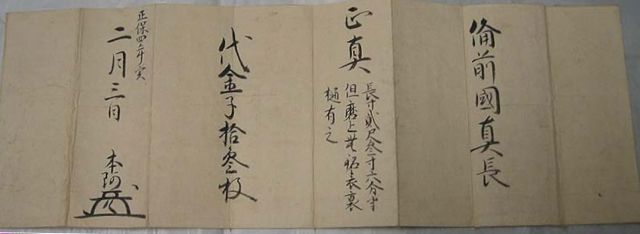 備前國真長
正真
長サ貳尺三寸六分半
但磨上無銘表裏
樋有之
代金子拾三枚
正保四年亥
二月三日
本阿